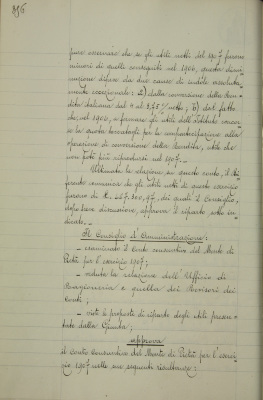 996
pure osservato che se gli utili netti del 1907 furono
minori di quelli conseguiti nel 1906, questa dimi-
nuzione dipese da due cause di indole assoluta-
mente eccezionale: 1) dalla conversione della Ren-
dita Italiana dal 4 al 3,75 % netto; 2) dal fatto
che, nel 1906, a formare gli utili dell'Istituto concor-
se la quota devolutagli per la compartecipazione alla
operazione di conversione della Rendita, utile che
non potè più riprodursi nel 1907.
Ultimata la relazione su questo conto, il
ferente comunica che gli utili netti di questo esercizio
furono di L. dei quali il Consiglio,
dopo breve discussione, approva il riparto sotto in-
dicato.
Il Consiglio d'Amministrazione:
- esaminato il Conto consuntivo del Monte di
Pietà per l'esercizio 1907;
- veduta la relazione dell'Ufficio di
Ragioneria e quella dei Revisori dei
Conti;
- viste le proposte di riparto degli utili presen-
tate dalla Giunta;
approva
il conto Consuntivo del Monte di Pietà per l'eserci-
zio 1907 nelle sue seguenti risultanze: